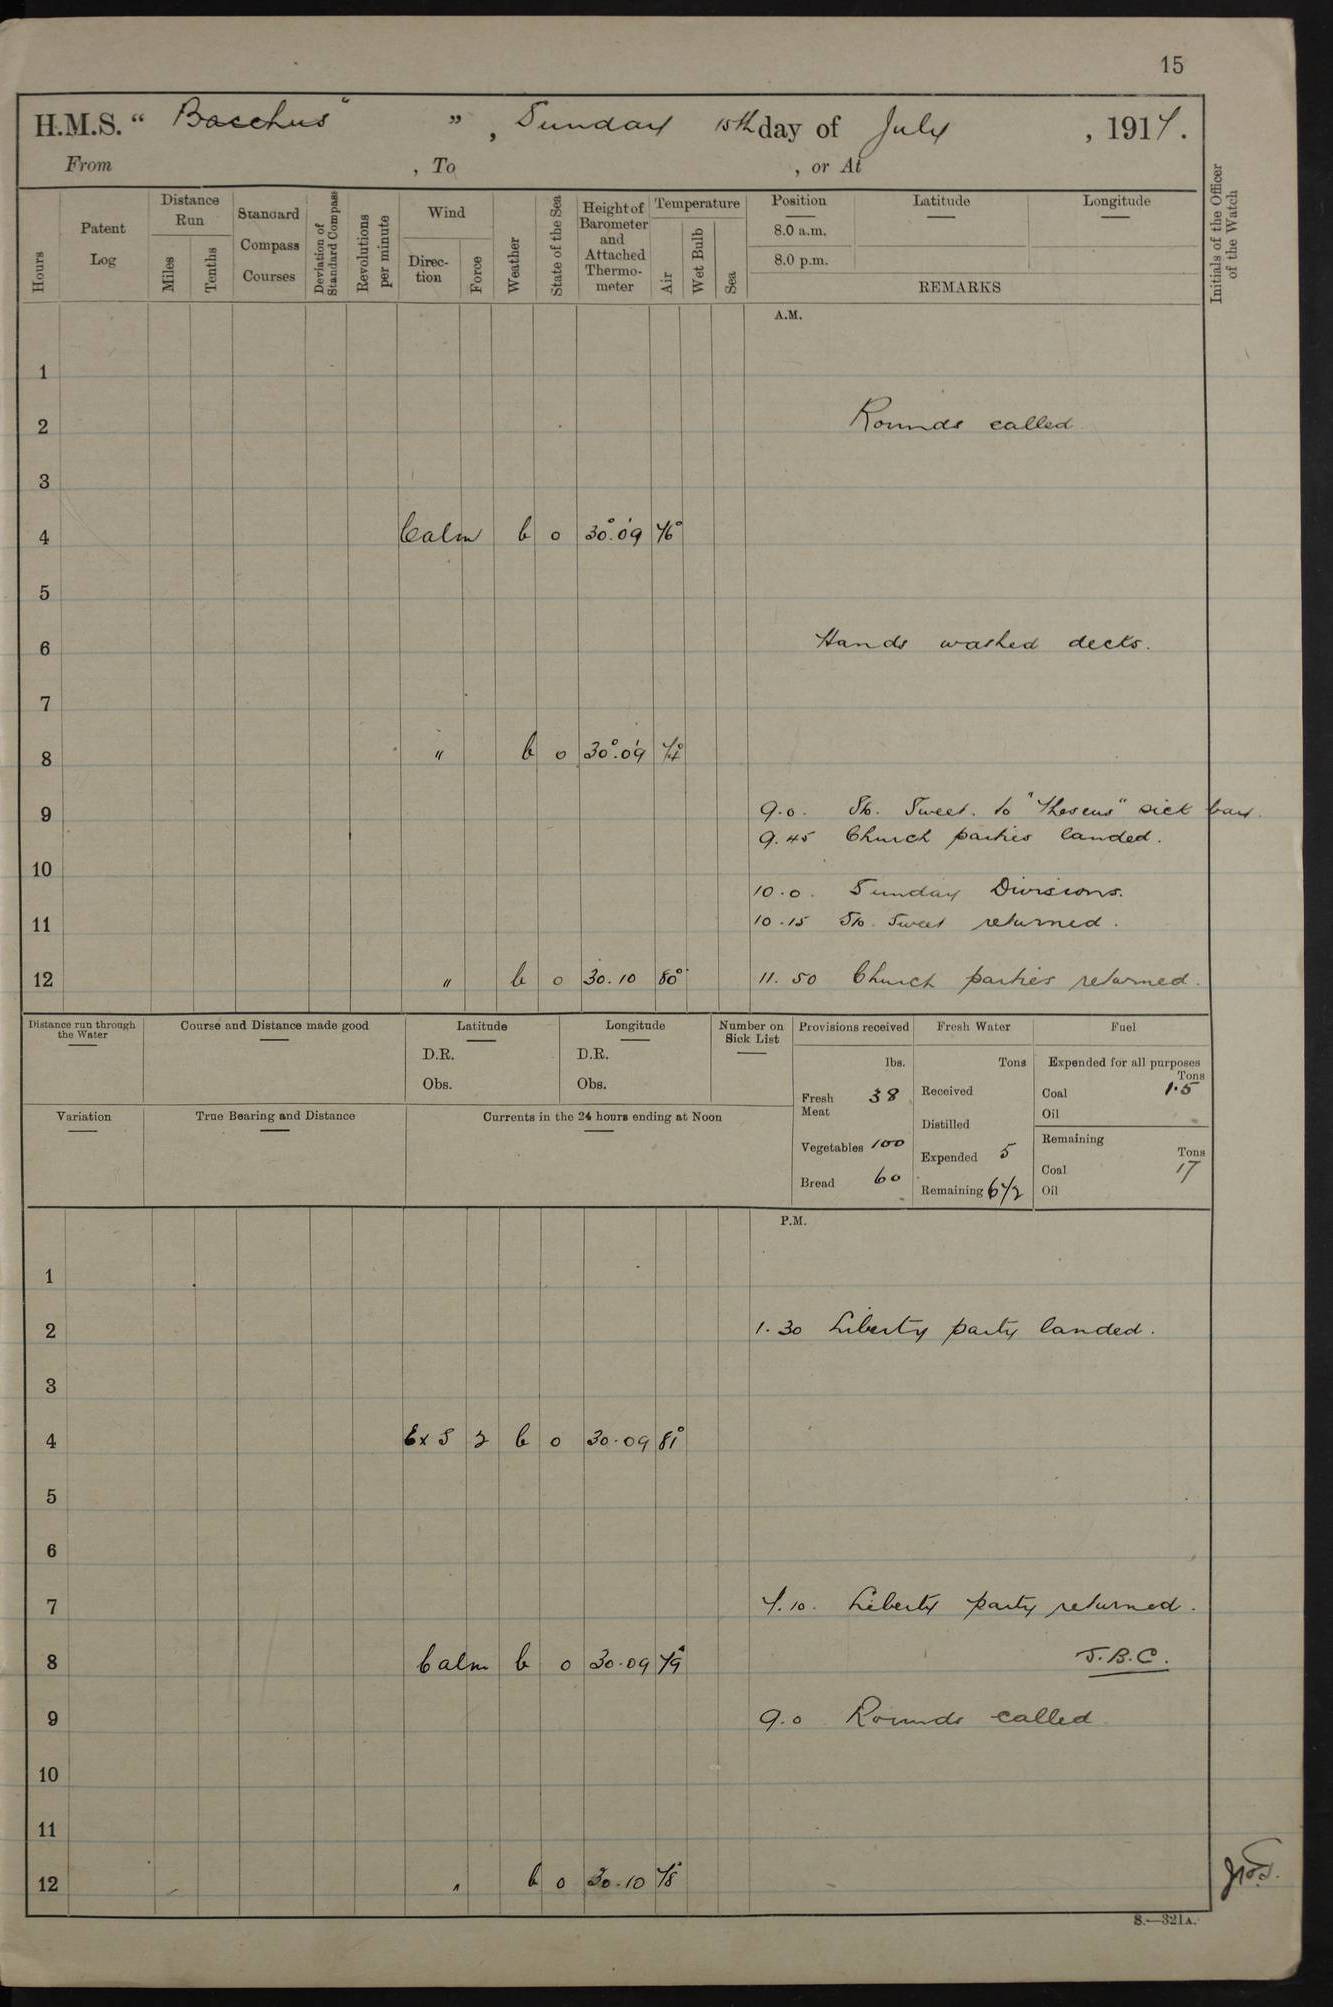 15
H.M.S. “ Bacchus ” , Sunday 15th day of July , 1917.
From , To , or At
Hours
Patent Log
Distance Run
Miles
Tenths
Standard Compass Courses
Deviation of Standard Compass
Revolutions per minute
Wind
Direction
Force
Weather
State of the Sea
Height of Barometer and Attached Thermometer
Temperature
Air
Wet Bulb
Sea
Position
Latitude
Longitude
8.0 a.m.
8.0 p.m.
REMARKS
Initials of the Officer of the Watch
A.M.
1
2 Rounds called
3
4 Calm b o 30°.09' 76°
5
6 Hands washed decks.
7
8 " b o 30°.09' 74°
9 9.0. Sto. Sweet. to "Theseus" sick bay.
9.45 Church parties landed.
10
10.0. Sunday Divisions.
11 10.15 Sto. Sweet returned.
12 " b o 30.10 80° 11.50 Church parties returned.
Distance run through the Water
Course and Distance made good
Latitude
D.R.
Obs.
Longitude
D.R.
Obs.
Number on Sick List
Provisions received
lbs.
Fresh Meat 38
Vegetables 100
Bread 60
Fresh Water
Tons
Received
Distilled
Expended 5
Remaining 6 1/2
Fuel
Expended for all purposes
Tons
Coal 1.5
Oil
Remaining
Tons
Coal 17
Oil
Variation
True Bearing and Distance
Currents in the 24 hours ending at Noon
P.M.
1
2 1.30 Liberty party landed.
3
4 ExS 2 b o 30.09 81°
5
6
7 7.10. Liberty party returned.
8 Calm b o 30.09 79° J.B.C.
9 9.0 Rounds called
10
11
12 " b o 30.10 78°
S.—321A.